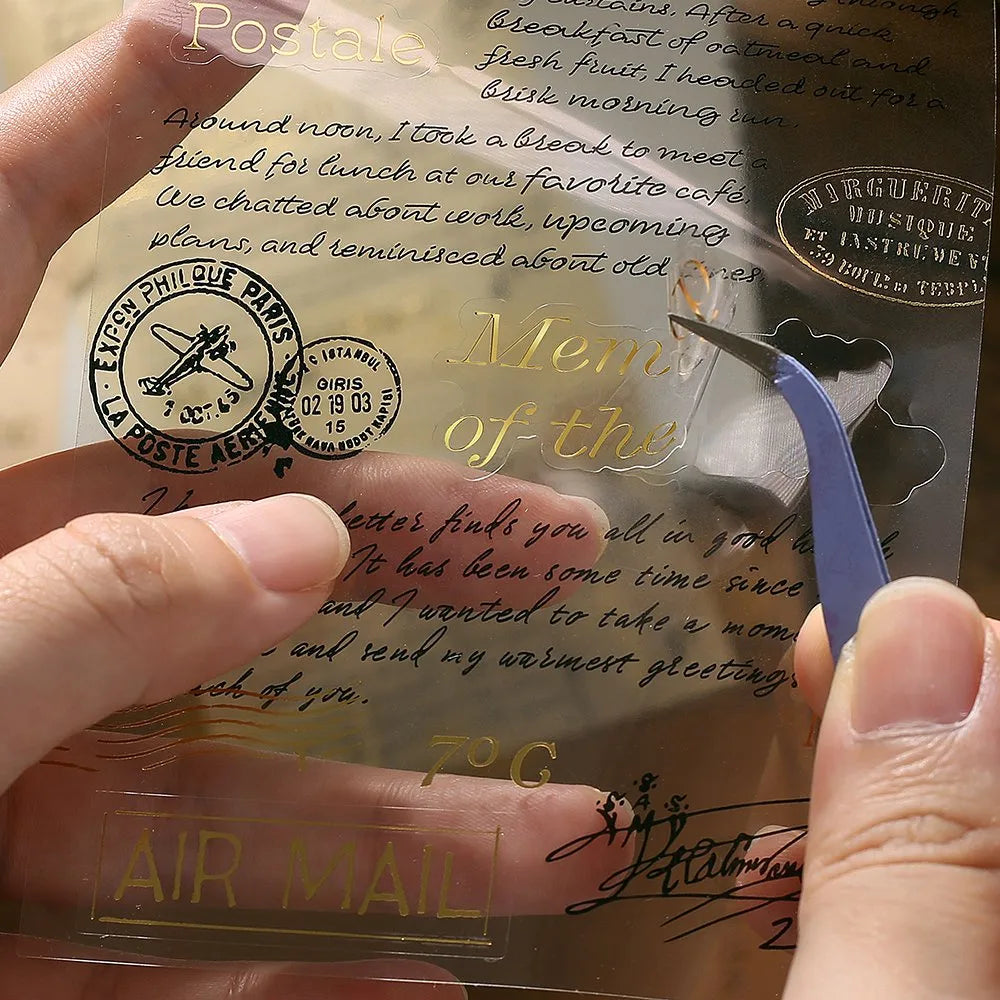 Postale
curtains. After a quick
breakfast of oatmeal and
fresh fruit, I headed out for a
brisk morning run.
Around noon, I took a break to meet a
friend for lunch at our favorite café.
We chatted about work, upcoming
plans, and reminisced about old
MIRGUERIT
MUSIQUE
ET INSTRUMEN
EXPON PHILQUE PARIS
7 OCT. 43
LA POSTE AERIENNE
ISTANBUL
GIRIS
02 19 03
15
Mem
of the
letter finds you all in good
It has been some time since
and I wanted to take a mom
and send my warmest greetings
of you.
7°C
AIR MAIL